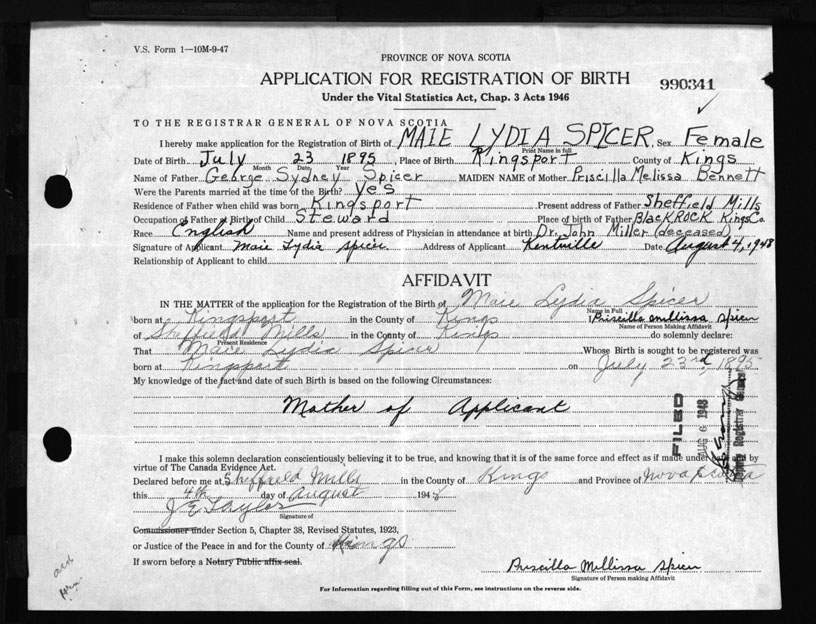 V.S. Form 1—10M-9-47
PROVINCE OF NOVA SCOTIA
APPLICATION FOR REGISTRATION OF BIRTH
990341
Under the Vital Statistics Act, Chap. 3 Acts 1946
TO THE REGISTRAR GENERAL OF NOVA SCOTIA
I hereby make application for the Registration of Birth of MAIE LYDIA SPICER Sex Female
Print Name in full
Date of Birth July 23 1895, Place of Birth Kingsport County of Kings
Month Date Year
Name of Father George Sydney Spicer MAIDEN NAME of Mother Priscilla Melissa Bennett
Were the Parents married at the time of the Birth? Yes
Residence of Father when child was born Kingsport Present address of Father Sheffield Mills
Occupation of Father at Birth of Child Steward Place of birth of Father BlackROCK Kings Co.
Race English Name and present address of Physician in attendance at birth Dr. John Miller (deceased)
Signature of Applicant Maie Lydia Spicer Address of Applicant Kentville Date August 4, 1948
Relationship of Applicant to child
AFFIDAVIT
IN THE MATTER of the application for the Registration of the Birth of Maie Lydia Spicer
Name in Full
born at Kingsport in the County of Kings I Priscilla Millissa Spicer
Name of Person Making Affidavit
of Sheffield Mills in the County of Kings do solemnly declare:
Present Residence
That Maie Lydia Spicer Whose Birth is sought to be registered was
born at Kingsport on July 23rd, 1895
My knowledge of the fact and date of such Birth is based on the following Circumstances:
Mother of Applicant
FILED
AUG 6 1948
Deputy Registrar General
I make this solemn declaration conscientiously believing it to be true, and knowing that it is of the same force and effect as if made under oath and by
virtue of The Canada Evidence Act.
Declared before me at Sheffield Mills in the County of Kings and Province of Nova Scotia
this 4th day of August 1948
J E Taylor
Signature of
Commissioner under Section 5, Chapter 38, Revised Statutes, 1923,
or Justice of the Peace in and for the County of Kings
If sworn before a Notary Public affix seal.
Priscilla Millissa Spicer
Signature of Person making Affidavit
For Information regarding filling out of this Form, see instructions on the reverse side.